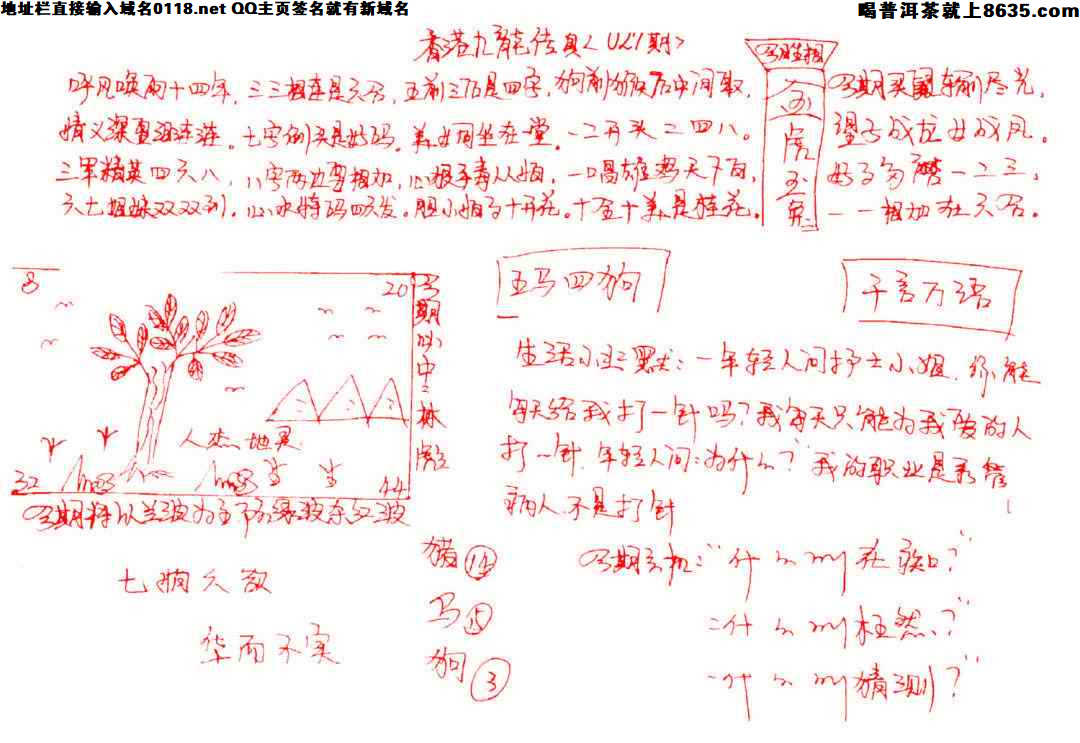 地址栏直接输入域名0118.net QQ主页签名就有新域名
喝普洱茶就上8635.com
香港九龍传真<021期>
呼风唤雨十四年,三三相连是六合,五前三后是四字,狗前猴后中间取,
情义深重 连连。七字倒头是好码。美女同坐在堂。一二开头二四八。
三军精英四六八,八字两边要相加,心狠手毒从 ,一唱雄鸡天下白,
六七姐妹双双到,心水特码四六发。胆小 十开花。十全十美是桂花。
今期生肖相
金
虎
玉
兔
今期买 输尽光,
望子成龙女成凤。
好了 一二三,
一一相加在六合。
8
20
人杰地灵
32
44
今期必中:林
今期特以兰波为主下防绿波东红波
五马四狗
千言万语
生活小幽默:一年轻人问护士小姐,你能
每天给我打一针吗?我每天只能为我爱的人
打一针,年轻人问:为什么?我的职业是看管
病人,不是打针
七 久
华而不实
猪 14
马 15
狗 3
今期玄机:“什么叫花 口?”
:什么叫枉然?”
一什么叫猜测?”